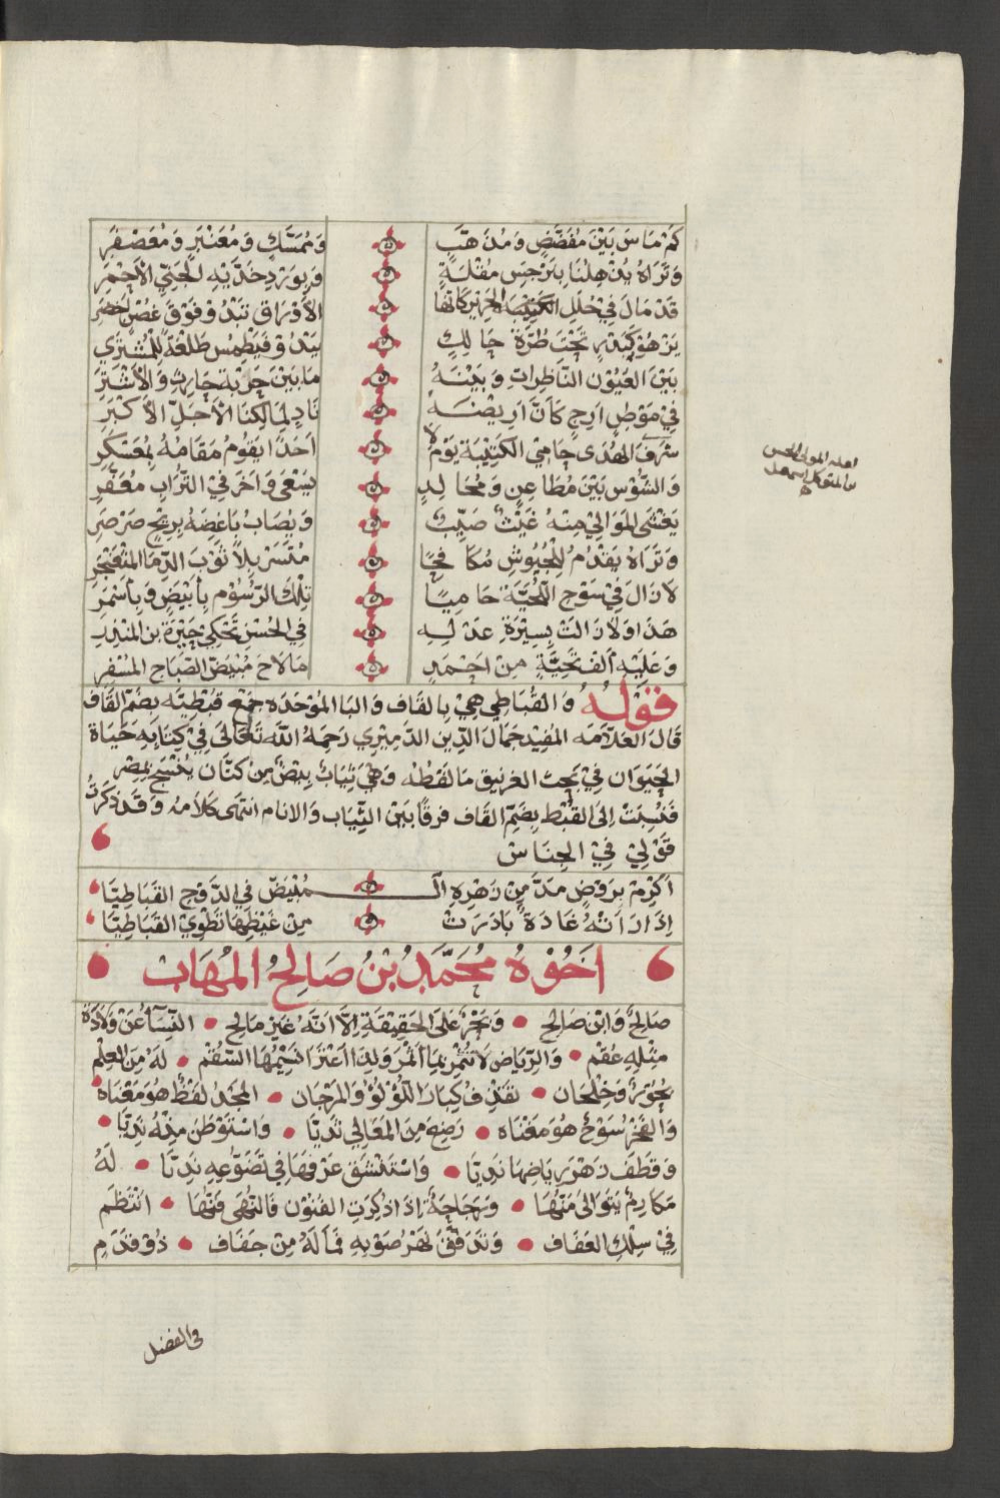 كَمْ مَاسَ بَيْنَ مُفَضَّضٍ وَمُذَهَّبٍ وَمُمَسَّكٍ وَمُعَنْبَرٍ وَمُعَصْفَرِ
وَتَرَاهُ يُذْهِلُنَا بِنَرْجِسِ مُقْلَةٍ وَبِوَرْدِ خَدَّيْهِ الْجَنِيِّ الْأَحْمَرِ
قَدْ مَالَ فِي حُلَلِ كَأَنَّهَا الْأَوْرَاقُ تَبْدُو فَوْقَ غُصْنٍ أَخْضَرِ
يَزْهُو كَبَدْرٍ تَحْتَ طُرَّةِ حَالِكٍ يَبْدُو فَيَطْمِسُ طَلْعَةً لِلْمُشْتَرِي
بَيْنَ الْعُيُونِ النَّاظِرَاتِ وَبَيْنَهُ مَا بَيْنَ حَرْبَةِ حَارِثٍ وَالْأَشْتَرِ
فِي مَوْطِنٍ أَرِجٍ كَأَنَّ أَرِيضَهُ نَادٍ لِمَالِكِنَا الْأَجَلِّ الْأَكْبَرِ
شَرَفُ الْهُدَى حَامِي الْكَتِيبَةِ يَوْمَ لَا أَحَدًا يَقُومُ مَقَامَهُ بِمُعَسْكَرِ
وَالشُّوسُ بَيْنَ مُطَاعِنٍ وَمُجَالِدٍ يَسْعَى وَآخَرَ فِي التُّرَابِ مُعَفَّرِ
يَغْشَى الْمَوَالِي مِنْهُ غَيْثٌ صَيِّبٌ وَيُصَابُ بَاغِضُهُ بِرِيحٍ صَرْصَرِ
وَتَرَاهُ يَقْدُمُ لِلْجُيُوشِ مُكَافِحًا مُتَسَرْبِلًا ثَوْبَ الدِّمَا الْمُتَفَجِّرِ
لَا زَالَ فِي سُوحِ حَامِيًا تِلْكَ الرُّسُومَ بِأَبْيَضٍ وَبِأَسْمَرِ
هَذَا وَلَا زَالَتْ بِسِيْرَةِ عَدْلِهِ فِي الْحُسْنِ تَحْكِي بْنِ الْمُنْذِرِ
وَعَلَيْهِ أَلْفُ تَحِيَّةٍ مِنْ أَحْمَدٍ مَا لَاحَ مُبْيَضُّ الصَّبَاحِ الْمُسْفِرِ
اعله المولى الحسن
بن المتوكل اسمعيل
قَوْلُهُ وَالقُبَاطِي هِيَ بِالْقَافِ وَالبَا الْمُوَحَّدَه جَمْع قُبْطِيَّه بِضَمِّ القَاف
قَالَ العَلَّامَه المُفِيد جَمَالُ الدِّينِ الدَّمِيْرِي رَحِمَهُ اللّٰه تَعَالَى فِي كِتَابِهِ حَيَاةِ
الحَيَوَان فِي بَحث الغرنيق مَا لَفْظُه وَهِيَ ثِيَابٌ بِيضٌ مِنْ كَتَّان يُنْسَجُ بِمِصْر
فَنُسِبَتْ إِلَى القُبْط بِضَمِّ القَاف فَرقًا بَيْنَ الثِّيَاب وَالانام انتهى كَلَامُهُ وَقَد ذَكَرْتُ
قَوْلِي فِي الجِنَاس
اَكْرِمْ بِرَوْضٍ مَدَّ مِنْ زَهْرِهِ الـ ـمُبْيَضِّ فِي الدَّوْحِ القَبَاطِيَّا
إِذَا رَاَتْهُ غَادَةٌ بَادَرَتْ مِنْ غَيْظِهَا تَطْوِي القَبَاطِيَّا
اَخُوهُ مُحَمَّدُ بْنُ صَالِحُ المُهَاب
صَالِحٌ وَابْن صَالِح • وَبَحْرٌ عَلَى الْحَقِيقَةِ اِلَّا اَنَّهُ غَيْرُ مَالِح • النِّسَاءُ عَنْ وِلَادَةِ
مِثْلِهِ عُقْم • وَالرِّيَاضُ لَا تُثْمِرُ بِمَا اَثْمَرْ وَلِذَا اعْتَرَا نَسِيْمُهَا السُّقْم • لَهُ مِنَ العِلْم
بُحُورٌ وَخِلْجَان • تَقْذِفُ كِبَارَ اللُّؤْلُؤِ وَالمَرْجَان • المَجْدُ لَفْظٌ هُوَ مَعْنَاه
وَالفَخْرُ سُوْحٌ هُوَ مَغْنَاه • رَضِعَ مِنَ المَعَالِي ثَدِيًّا • وَاسْتَوْطَنَ مِنْهُ نَدِيًّا •
وَقَطَفَ زَهْرَ رِيَاضِهَا نَدِيًّا • وَاسْتَنْشَقَ عَرْفَهَا فِي تَضَوُّعِهِ نَدِيًّا • لَهُ
مَكَارِمٌ يَتَوَالَى مَنُّهَا • وَرَجَاحَةٌ اِذَا ذُكِرَتِ الفُنُوْن فَالنُّهَى فَنُّهَا • انْتَظَمَ
فِي سِلْكِ العَفَاف • وَتَدَفَّقَ نَهْرُ صَوْبِهِ فَمَا لَهُ مِنْ جَفَاف • ذُوْ قَدَمٍ
فى الفضل